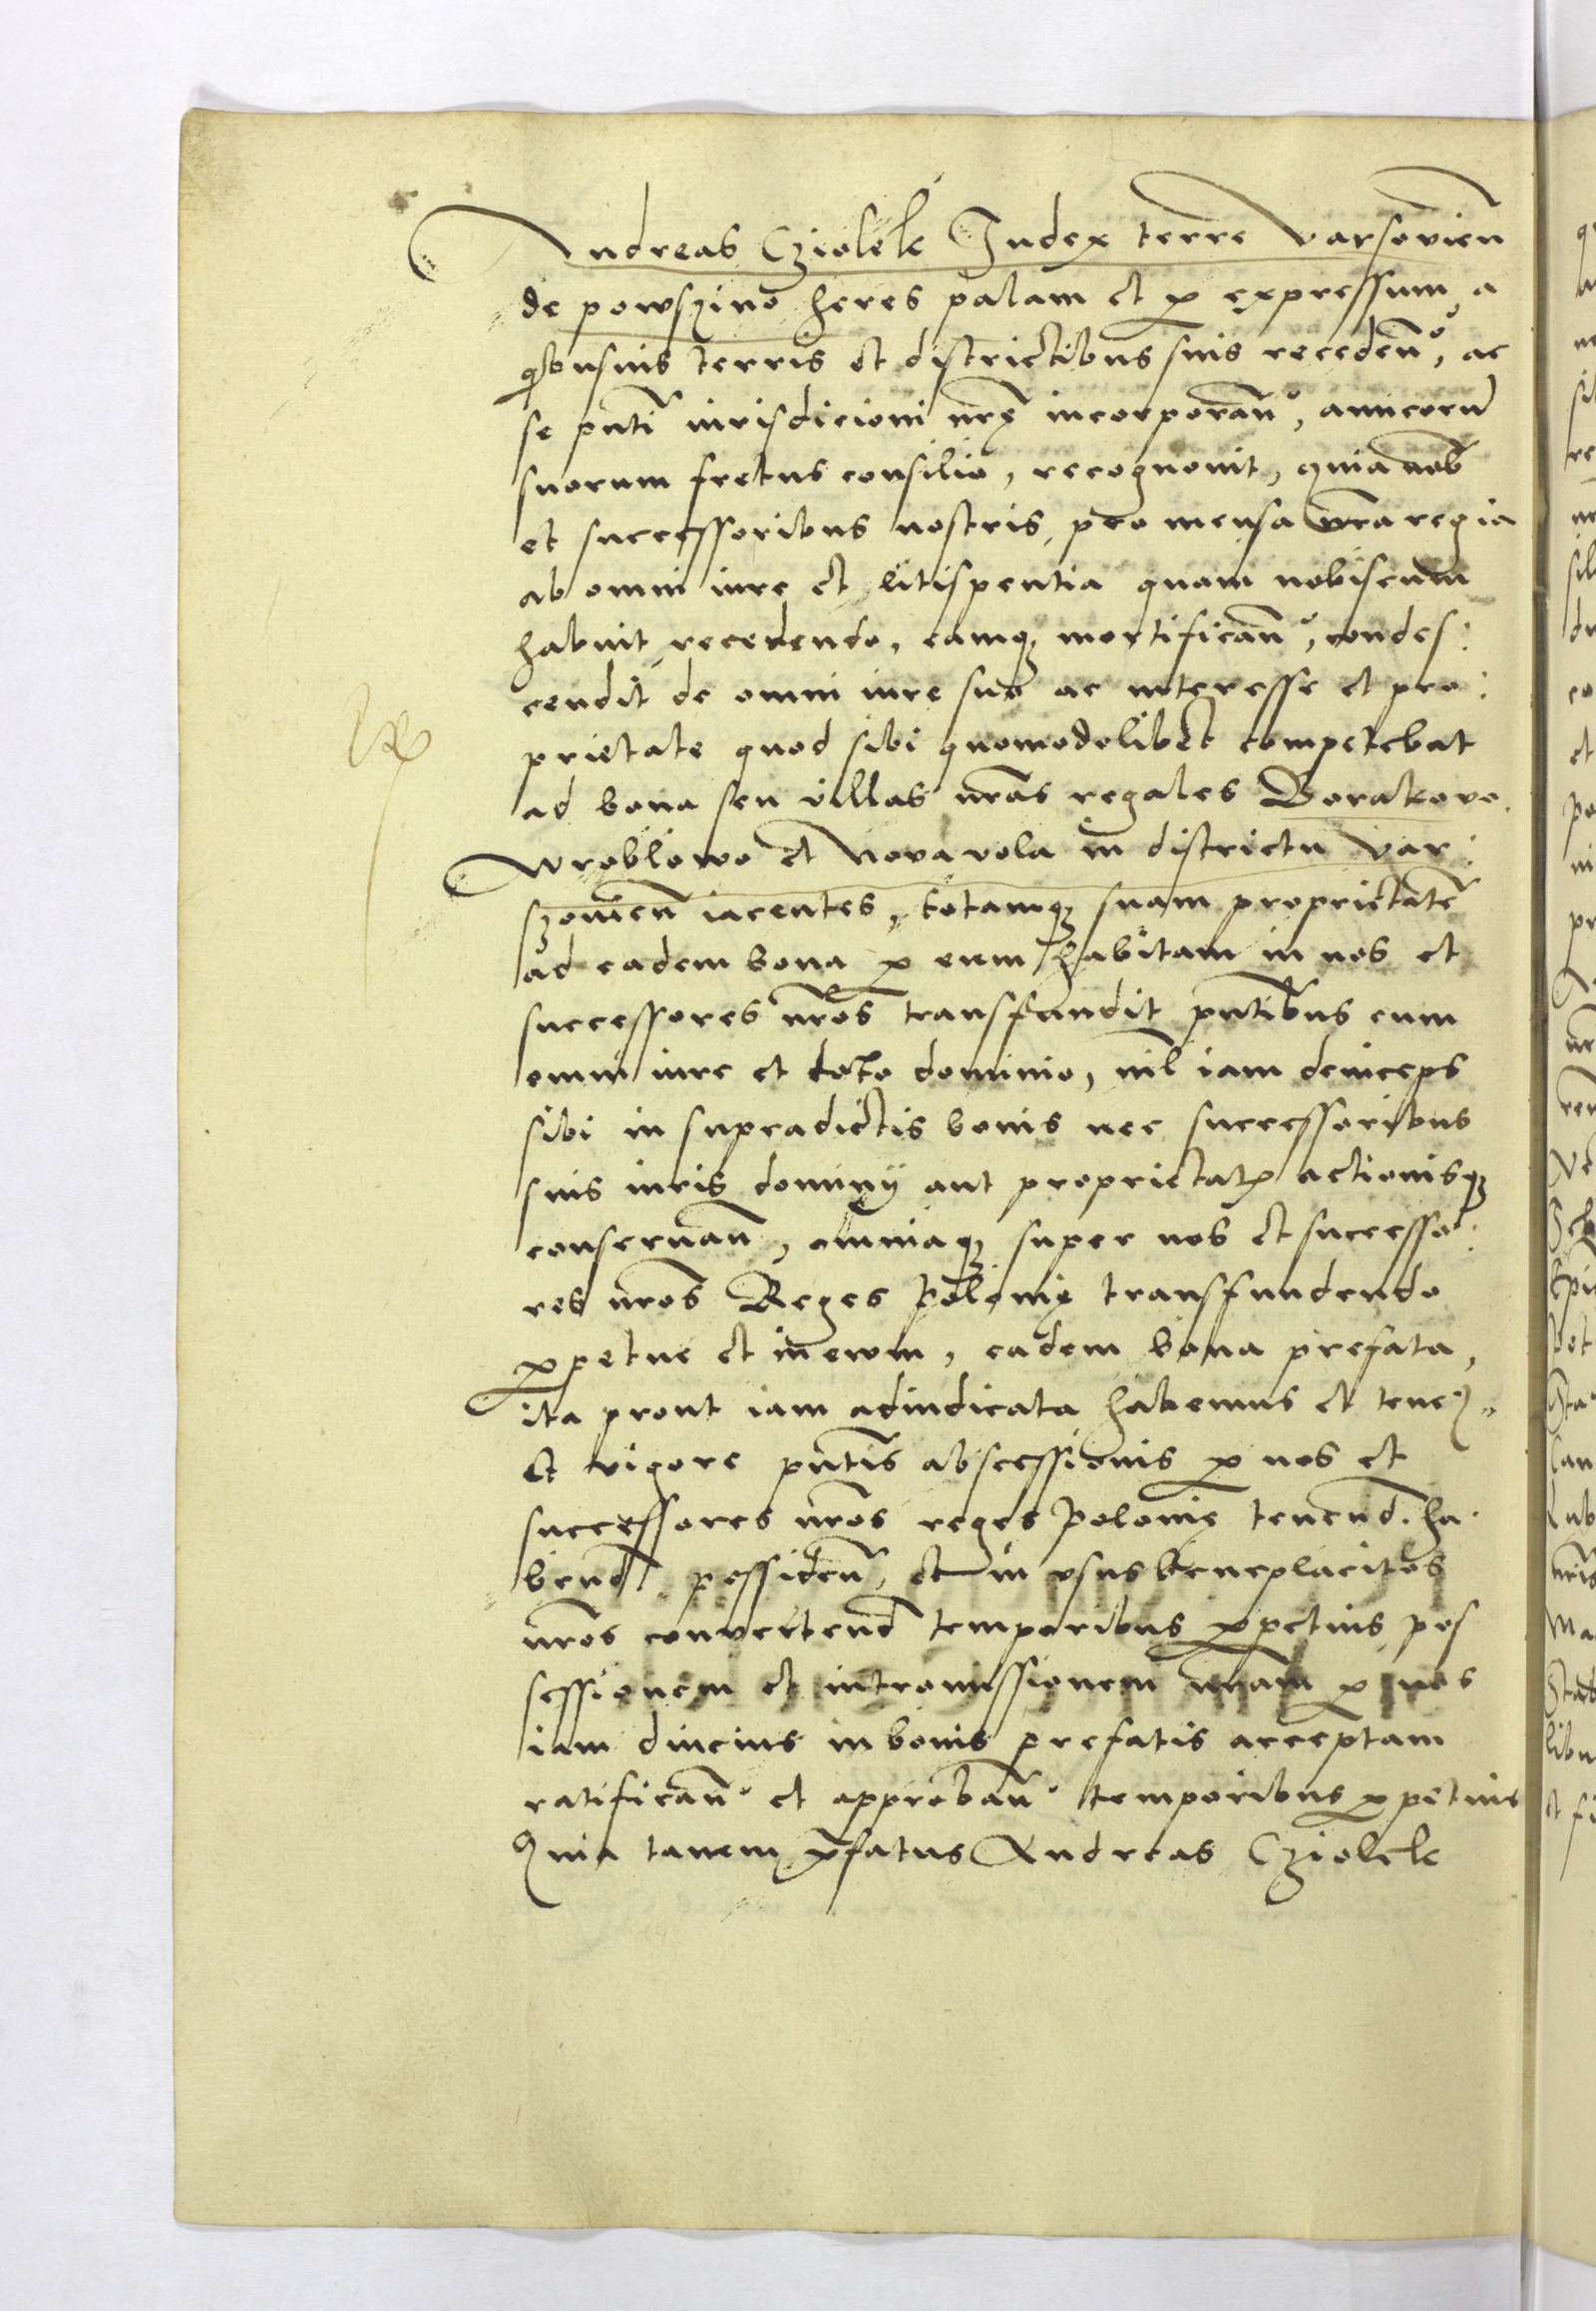 Andreas Cziolek Iudex terre varsovien
de powszino heres palam et p expressum a
qbusuis terris et districtibus suis recedenº, ac
se pnti iurisdicioni nrę incorporanº, amicoru
suorum fretus consilio, recognouit, quia nob
et successoribus nostris pro mensa nra regia
ab omni iure et litispentia quam nobiscum
habuit recedendo, eamq mortificanº, condes:
cendit de omni iure suo ac interesse et pro:
prietate quod sibi quomodolibet competebat
ad bona seu villas nras regales Borakovo
Wroblowo et Nova vola in districtu var:
szouien iacentes, totamq suam proprietate
ad eadem bona p eum habitam in nos et
successores nros transfundit pntibus cum
omni iure et toto dominio, nil iam deinceps
sibi in supradictis bonis nec successoribus
suis iuris dominij aut proprietatis actionisq
conseruan, omniaq super nos et successo:
res nros Reges Polonię transfundendo
ppetue et in ewm, eadem bona prefata,
ita prout iam adiudicata habemus et tenem
Et vigore pntis abscessionis p nos et
successores nros reges Polonię tenend. ha
bend possiden, et in vsus beneplacitos
nros convertend temporibus ppetuis pos
sessionem et intromissionem nram p nos
iam diucius in bonis prefatis acceptam
ratificanº et approbanº temporibus ppetuis
Quia tamen pfatus Andreas Cziolek